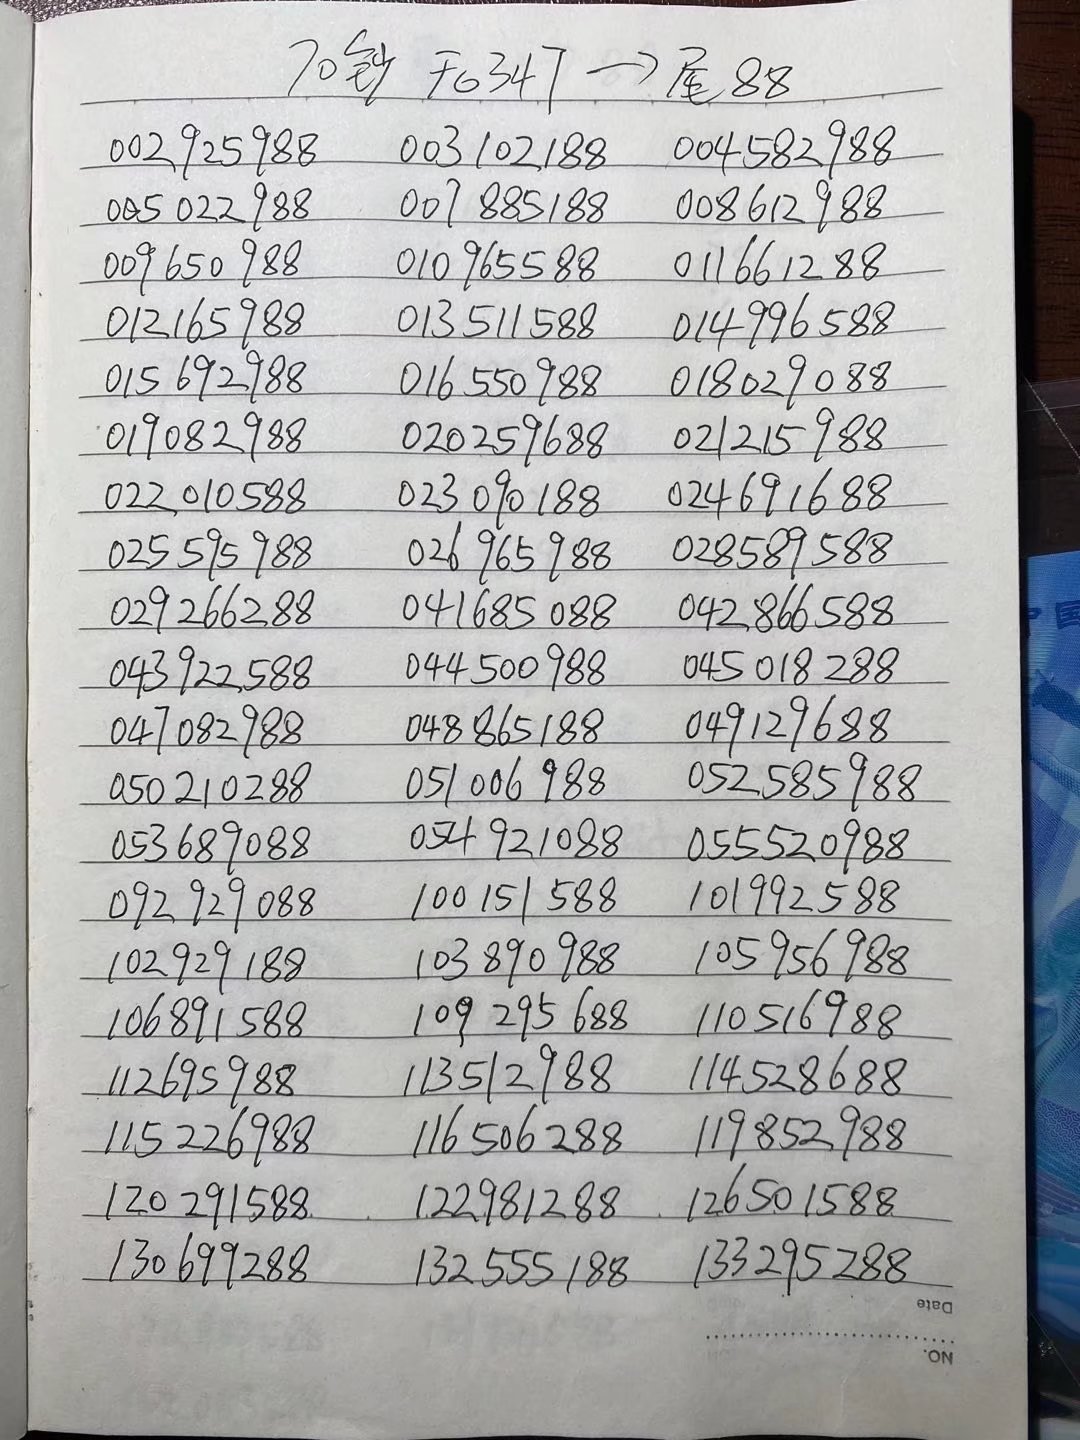 70钞 无347→尾88
002925988 003102188 004582988
005022988 007885188 008612988
009650988 010965588 011661288
012165988 013511588 014996588
015692988 016550988 018029088
019082988 020259688 021215988
022010588 023090188 024691688
025595988 026965988 028589588
029266288 041685088 042866588
043922588 044500988 045018288
047082988 048865188 049129688
050210288 051006988 052585988
053689088 054921088 055520988
092929088 100151588 101992588
102929188 103890988 105956988
106891588 109295688 110516988
112695988 113512988 114528688
115226988 116506288 119852988
120291588 122981288 126501588
130699288 132555188 133295288
Date
NO.
中国